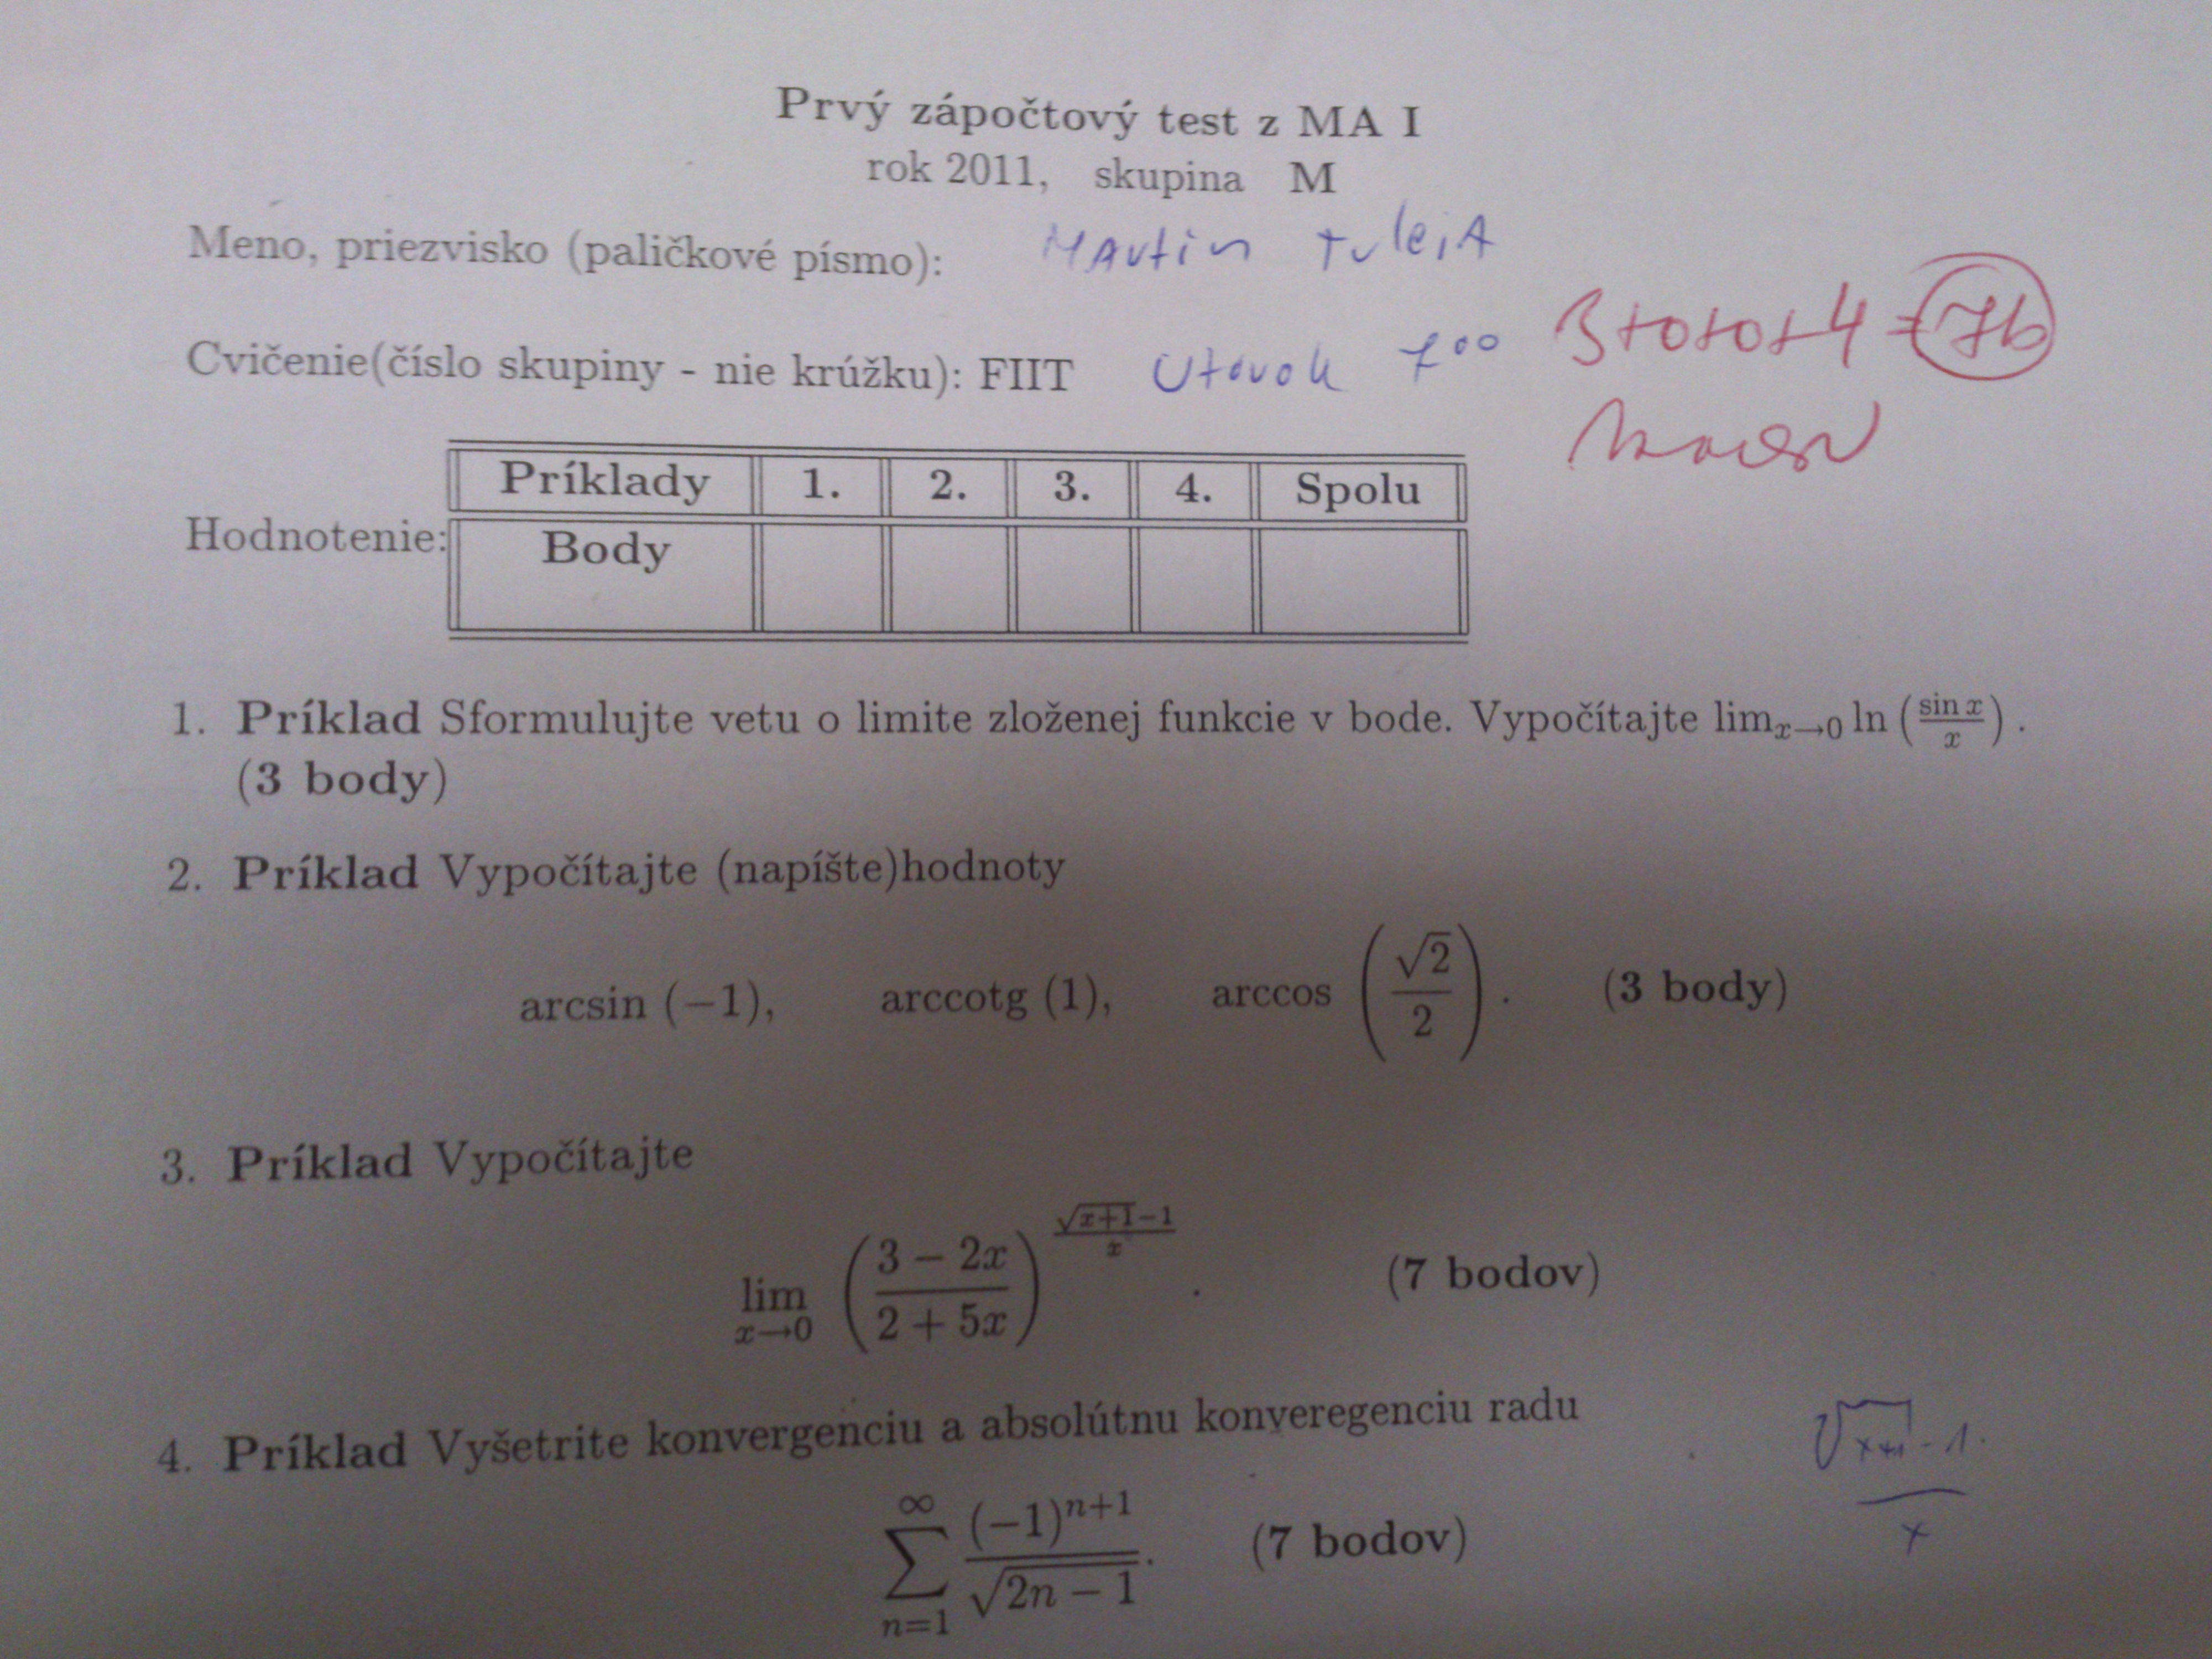 Prvý zápočtový test z MA I
rok 2011, skupina M
Meno, priezvisko (paličkové písmo): Martin TuleJA
Cvičenie(číslo skupiny - nie krúžku): FIIT Utorok 7⁰⁰
3+0+0+4 = 7b
Príklady 1. 2. 3. 4. Spolu
Hodnotenie: Body
1. Príklad Sformulujte vetu o limite zloženej funkcie v bode. Vypočítajte lim_{x→0} ln (sin x / x).
(3 body)
2. Príklad Vypočítajte (napíšte)hodnoty
arcsin (−1), arccotg (1), arccos (√2 / 2). (3 body)
3. Príklad Vypočítajte
lim_{x→0} ((3 − 2x) / (2 + 5x))^{(√(x+1)−1) / x}. (7 bodov)
4. Príklad Vyšetrite konvergenciu a absolútnu konveregenciu radu
∑_{n=1}^{∞} (−1)^{n+1} / √(2n − 1). (7 bodov)
(√(x+1) - 1) / x